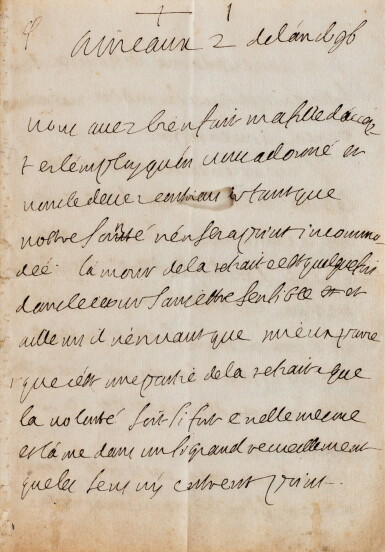 a meaux 2 de lan 1696
vous avez bien fait ma fille d'accep
ter l'employ qu'on vous a donné et
vous le devez continuer tant que
vostre santé n'en sera point incommo
dée. l'amour de la retraite est quelquefois
dans le cœur sans estre sensible et et
ailleurs il n'en vaut que mieux parce
que c'est une partie de la retraite que
la volonté soit si fort en elle mesme
et l'ame dans un si grand recueillement
que les sens n'y entrent point.